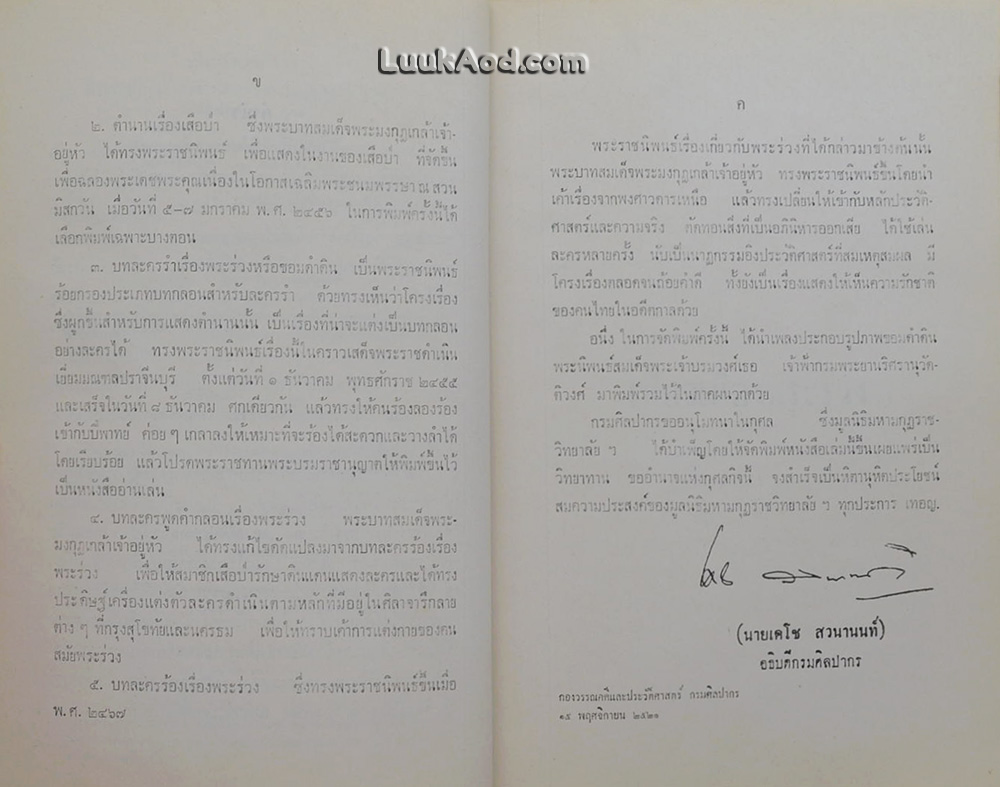 LuukAod.com
ข
๒. ตำนานเรื่องเสือป่า ซึ่งพระบาทสมเด็จพระมงกุฎเกล้าเจ้า-
อยู่หัว ได้ทรงพระราชนิพนธ์ เพื่อแสดงในงานของเสือป่า ที่จัดขึ้น
เพื่อฉลองพระเดชพระคุณเนื่องในโอกาสเฉลิมพระชนมพรรษา ณ สวน
มิสกวัน เมื่อวันที่ ๕-๗ มกราคม พ.ศ. ๒๔๕๖ ในการพิมพ์ครั้งนี้ได้
เลือกพิมพ์เฉพาะบางตอน
๓. บทละครรำเรื่องพระร่วงหรือขอมดำดิน เป็นพระราชนิพนธ์
ร้อยกรองประเภทบทกลอนสำหรับละครรำ ด้วยทรงเห็นว่าโครงเรื่อง
ซึ่งผูกขึ้นสำหรับการแสดงตำนานนั้น เป็นเรื่องที่น่าจะแต่งเป็นบทกลอน
อย่างละครได้ ทรงพระราชนิพนธ์เรื่องนี้ในคราวเสด็จพระราชดำเนิน
เยี่ยมมณฑลปราจีนบุรี ตั้งแต่วันที่ ๑ ธันวาคม พุทธศักราช ๒๔๕๕
และเสร็จในวันที่ ๘ ธันวาคม ศกเดียวกัน แล้วทรงให้คนร้องลองร้อง
เข้ากับปี่พาทย์ ค่อย ๆ เกลาลงให้เหมาะที่จะร้องได้สะดวกและวางลำได้
โดยเรียบร้อย แล้วโปรดพระราชทานพระบรมราชานุญาตให้พิมพ์ขึ้นไว้
เป็นหนังสืออ่านเล่น
๔. บทละครพูดคำกลอนเรื่องพระร่วง พระบาทสมเด็จพระ-
มงกุฎเกล้าเจ้าอยู่หัว ได้ทรงแก้ไขดัดแปลงมาจากบทละครร้องเรื่อง
พระร่วง เพื่อให้สมาชิกเสือป่ารักษาดินแดนแสดงละครและได้ทรง
ประดิษฐ์เครื่องแต่งตัวละครดำเนินตามหลักที่มีอยู่ในศิลาจารึกลาย
ต่าง ๆ ที่กรุงสุโขทัยและนครธม เพื่อให้ทราบเค้าการแต่งกายของคน
สมัยพระร่วง
๕. บทละครร้องเรื่องพระร่วง ซึ่งทรงพระราชนิพนธ์ขึ้นเมื่อ
พ.ศ. ๒๔๖๗
ค
พระราชนิพนธ์เรื่องเกี่ยวกับพระร่วงที่ได้กล่าวมาข้างต้นนั้น
พระบาทสมเด็จพระมงกุฎเกล้าเจ้าอยู่หัว ทรงพระราชนิพนธ์ขึ้นโดยนำ
เค้าเรื่องจากพงศาวดารเหนือ แล้วทรงเปลี่ยนให้เข้ากับหลักประวัติ-
ศาสตร์และความจริง ตัดทอนสิ่งที่เป็นอภินิหารออกเสีย ได้ใช้เล่น
ละครหลายครั้ง นับเป็นนาฏกรรมอิงประวัติศาสตร์ที่สมเหตุสมผล มี
โครงเรื่องตลอดจนถ้อยคำดี ทั้งยังเป็นเรื่องแสดงให้เห็นความรักชาติ
ของคนไทยในอดีตกาลด้วย
อนึ่ง ในการจัดพิมพ์ครั้งนี้ ได้นำเพลงประกอบรูปภาพขอมดำดิน
พระนิพนธ์สมเด็จพระเจ้าบรมวงศ์เธอ เจ้าฟ้ากรมพระยานริศรานุวัด-
ติวงศ์ มาพิมพ์รวมไว้ในภาคผนวกด้วย
กรมศิลปากรขออนุโมทนาในกุศล ซึ่งมูลนิธิมหามกุฏราช-
วิทยาลัย ฯ ได้บำเพ็ญโดยให้จัดพิมพ์หนังสือเล่มนี้ขึ้นเผยแพร่เป็น
วิทยาทาน ขออำนาจแห่งกุศลกิจนี้ จงสำเร็จเป็นหิตานุหิตประโยชน์
สมความประสงค์ของมูลนิธิมหามกุฏราชวิทยาลัย ฯ ทุกประการ เทอญ.
(นายเดโช สวนานนท์)
อธิบดีกรมศิลปากร
กองวรรณคดีและประวัติศาสตร์ กรมศิลปากร
๑๕ พฤศจิกายน ๒๕๒๑